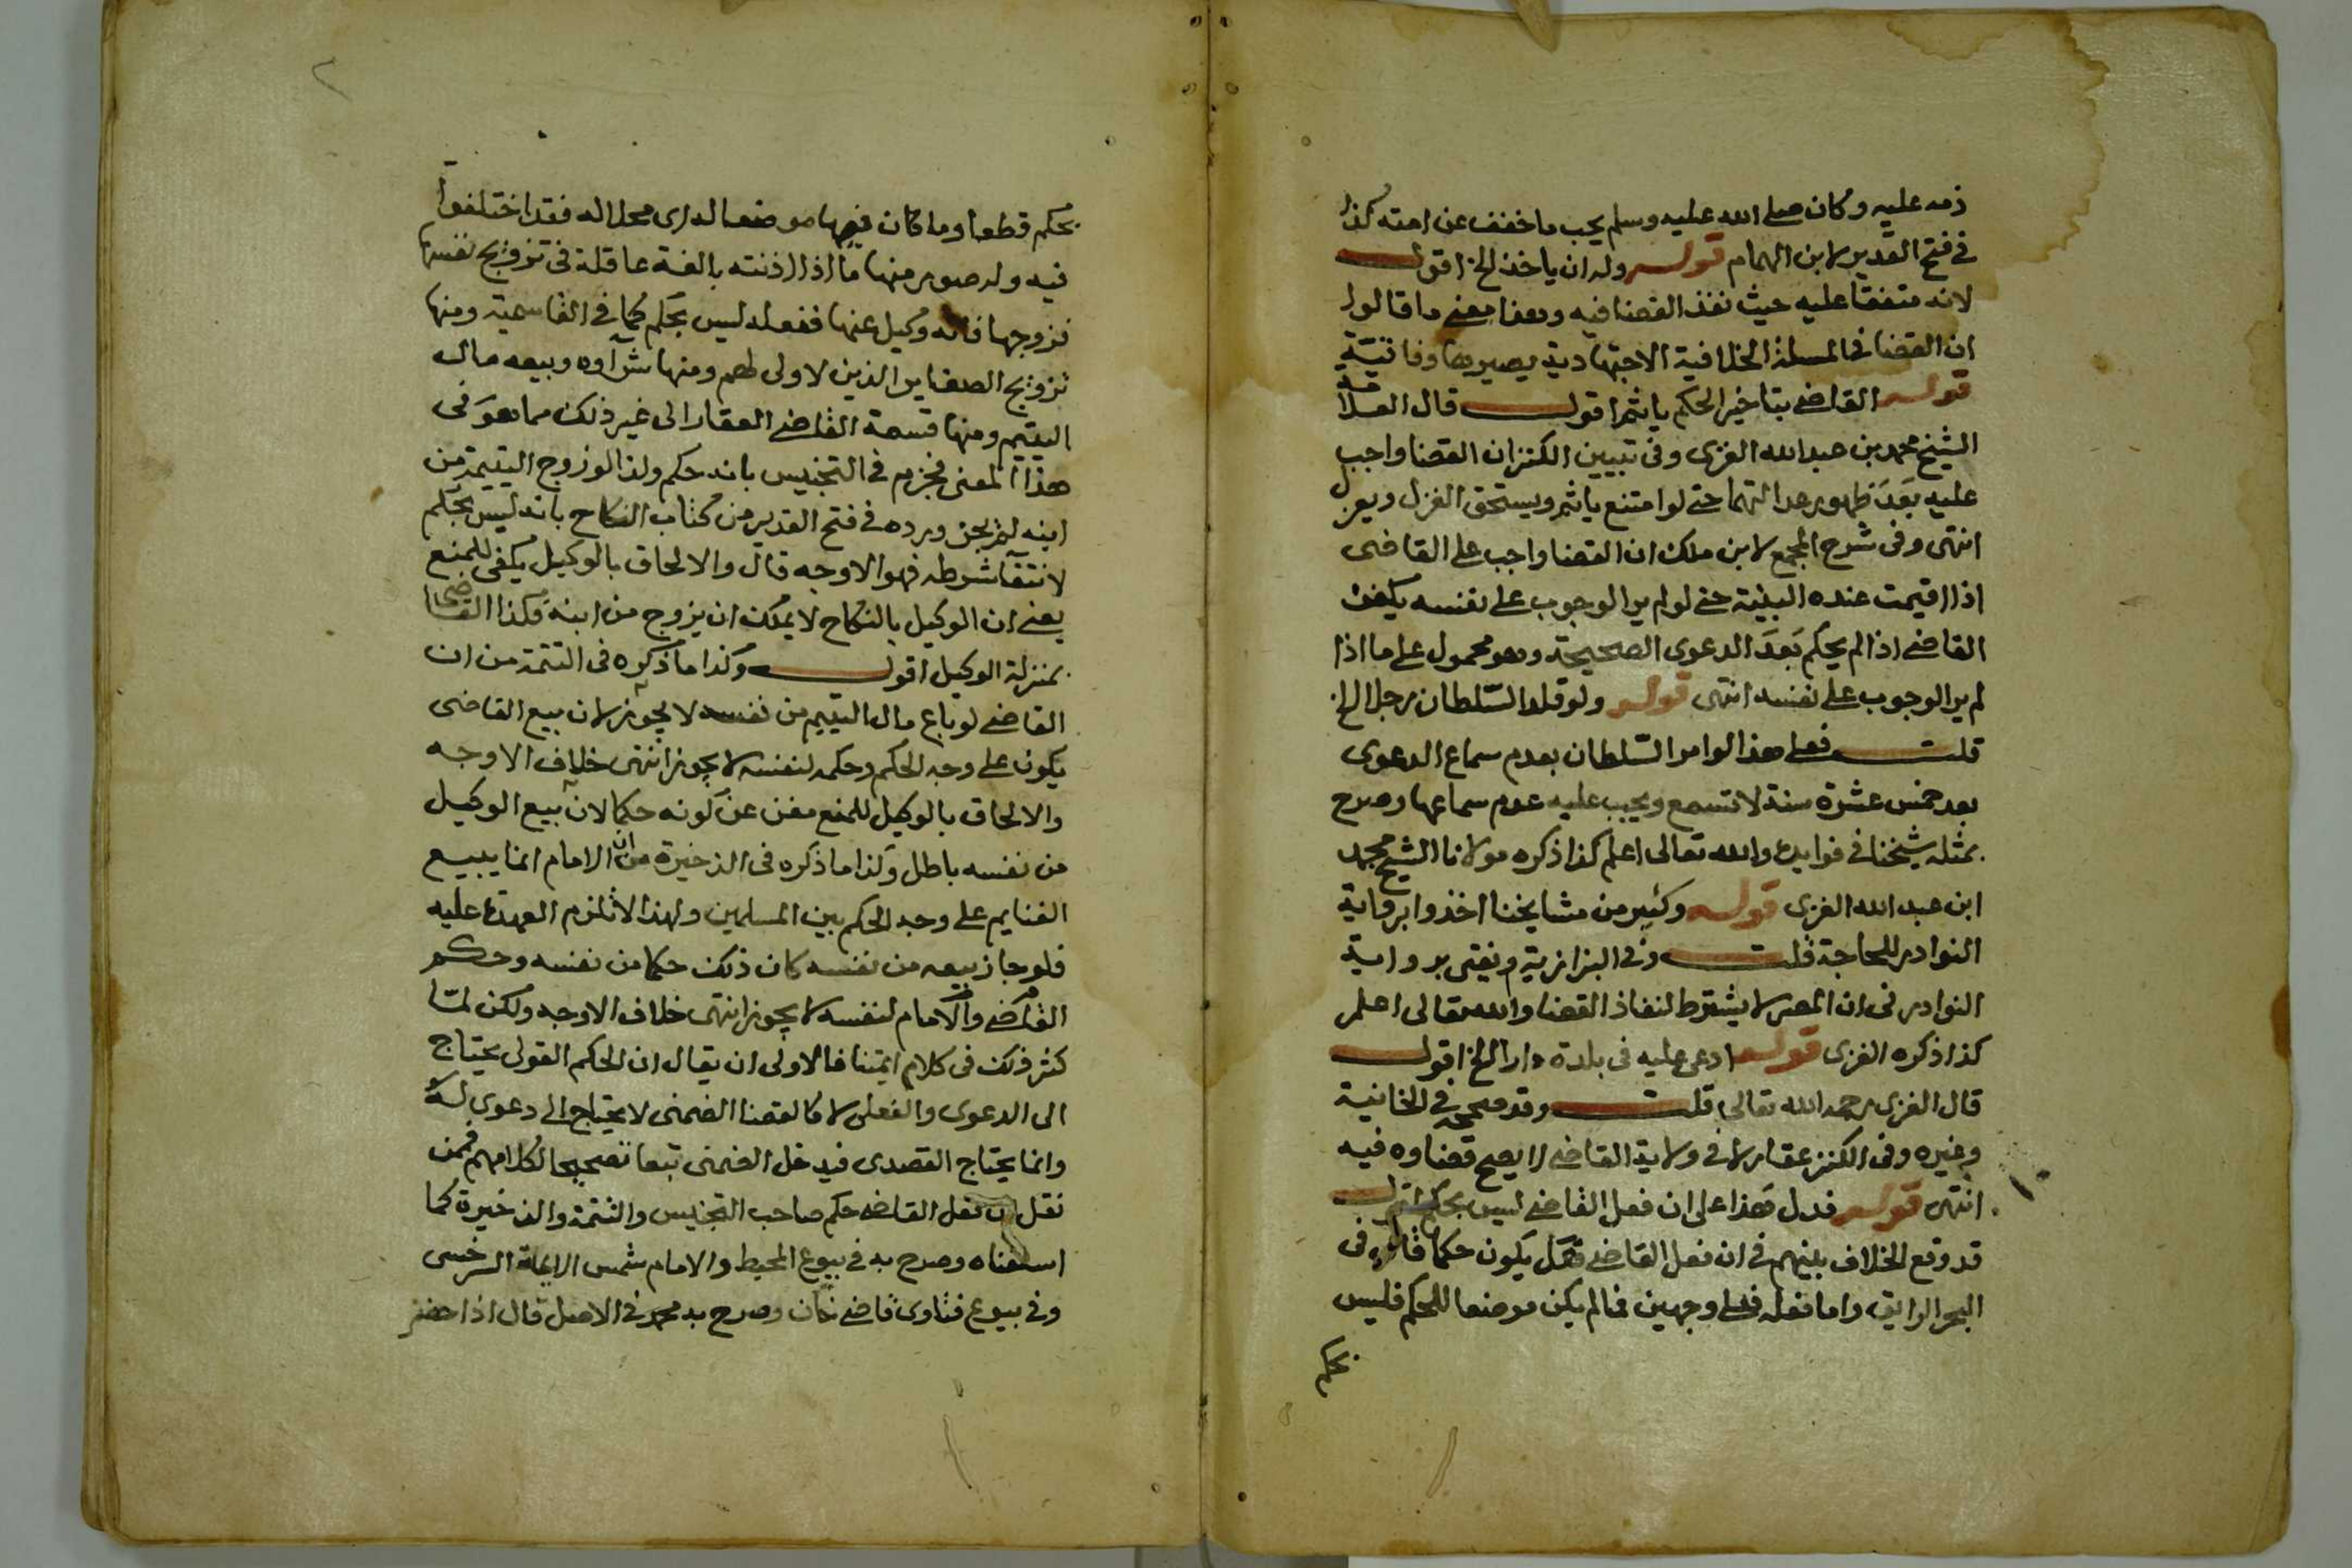 ذمه عليه وكان صلى الله عليه وسلم يحب ما خفف عن امته كذا
في فتح القدير لابن الهمام قوله وله ان ياخذ الخ اقول
لانه متفقا عليه حيث نفذ القضا فيه وهذا معنى ما قالوا
ان القضا في المسئلة الخلافية الاجتهادية يصيرها وفاقية
قوله القاضي بتاخير الحكم ياثم اقول قال العلامة
الشيخ محمد بن عبد الله الغزى وفى تبيين الكنز ان القضا واجب
عليه بعد ظهور عدالتهما حتى لو امتنع ياثم ويستحق العزل ويعزل
انتهى وفى شرح المجمع لابن ملك ان القضا واجب على القاضى
اذا اقيمت عنده البينة حتى لو لم ير الوجوب على نفسه يكفر
القاضي اذا لم يحكم بعد الدعوى الصحيحة وهو محمول على ما اذا
لم ير الوجوب على نفسه انتهى قوله ولو قلد السلطان رجلا الخ
قلت فعلى هذا لو امر السلطان بعدم سماع الدعوى
بعد خمس عشرة سنة لا تسمع ويجب عليه عدم سماعها وصرح
بمثله شيخنا في فوايده والله تعالى اعلم كذا ذكره مولانا الشيخ محمد
ابن عبد الله الغزى قوله وكثير من مشايخنا اخذوا برواية
النوادر للحاجة قلت وفي البزازية ونفتى برواية
النوادر فى ان المصر لا يشترط لنفاذ القضا والله تعالى اعلم
كذا ذكره الغزى قوله ادعى عليه فى بلدة دارا الخ اقول
قال الغزى رحمه الله تعالى قلت وقد صححه في الخانية
وغيره وفى الكنز عقار لا فى ولاية القاضي لا يصح قضاوه فيه
انتهى قوله فدل هذا على ان فعل القاضي ليس بحكم اقول
قد وقع الخلاف بينهم في ان فعل القاضي هل يكون حكما قال فى
البحر الرايق واما فعله فعلى وجهين فما لم يكن موضعا للحكم فليس
بحكم
بحكم قطعا وما كان فيها موضعا لدى محلا له فقد اختلفوا
فيه وله صور منها ما اذا اذنته بالغة عاقلة فى تزويج نفسها
فزوجها فانه وكيل عنها ففعله ليس بحكم كما في القاسمية ومنها
تزويج الصغاير الذين لا ولى لهم ومنها شراوه وبيعه مال
اليتيم ومنها قسمة القاضي العقار الى غير ذلك مما هو فى
هذا المعنى فجزم في التجنيس بانه حكم ولذا لو زوج اليتيمة من
ابنه لم يجز ورده في فتح القدير من كتاب النكاح بانه ليس بحكم
لانتفا شرطه فهو الاوجه قال والالحاق بالوكيل يكفى للمنع
يعنى ان الوكيل بالنكاح لا يملك ان يزوج من ابنه فكذا القاضى
بمنزلة الوكيل اقول وكذا ما ذكره فى التتمة من ان
القاضي لو باع مال اليتيم من نفسه لا يجوز لان بيع القاضى
يكون على وجه الحكم وحكمه لنفسه لا يجوز انتهى خلاف الاوجه
والالحاق بالوكيل للمنع مغن عن كونه حكما لان بيع الوكيل
من نفسه باطل وكذا ما ذكره فى الذخيرة من ان الامام انما يبيع
الغنايم على وجه الحكم بين المسلمين ولهذا لا تلزم العهدة عليه
فلو جاز بيعه من نفسه كان ذلك حكما من نفسه وحكم
القاضي والامام لنفسه لا يجوز انتهى خلاف الاوجه ولكن لما
كثر ذلك فى كلام ايمتنا فالاولى ان يقال ان الحكم القولى يحتاج
الى الدعوى والفعلى لا كالقضا الضمنى لا يحتاج الى دعوى له
وانما يحتاج القصدى فيدخل الضمنى تبعا تصحيحا لكلامهم فمن
نقل ان فعل القاضي حكم صاحب التجنيس والتتمة والذخيرة كما
اسلفناه وصرح به في بيوع المحيط والامام شمس الايمة السرخسى
وفى بيوع فتاوى قاضي خان وصرح به محمد في الاصل قال اذا حضر